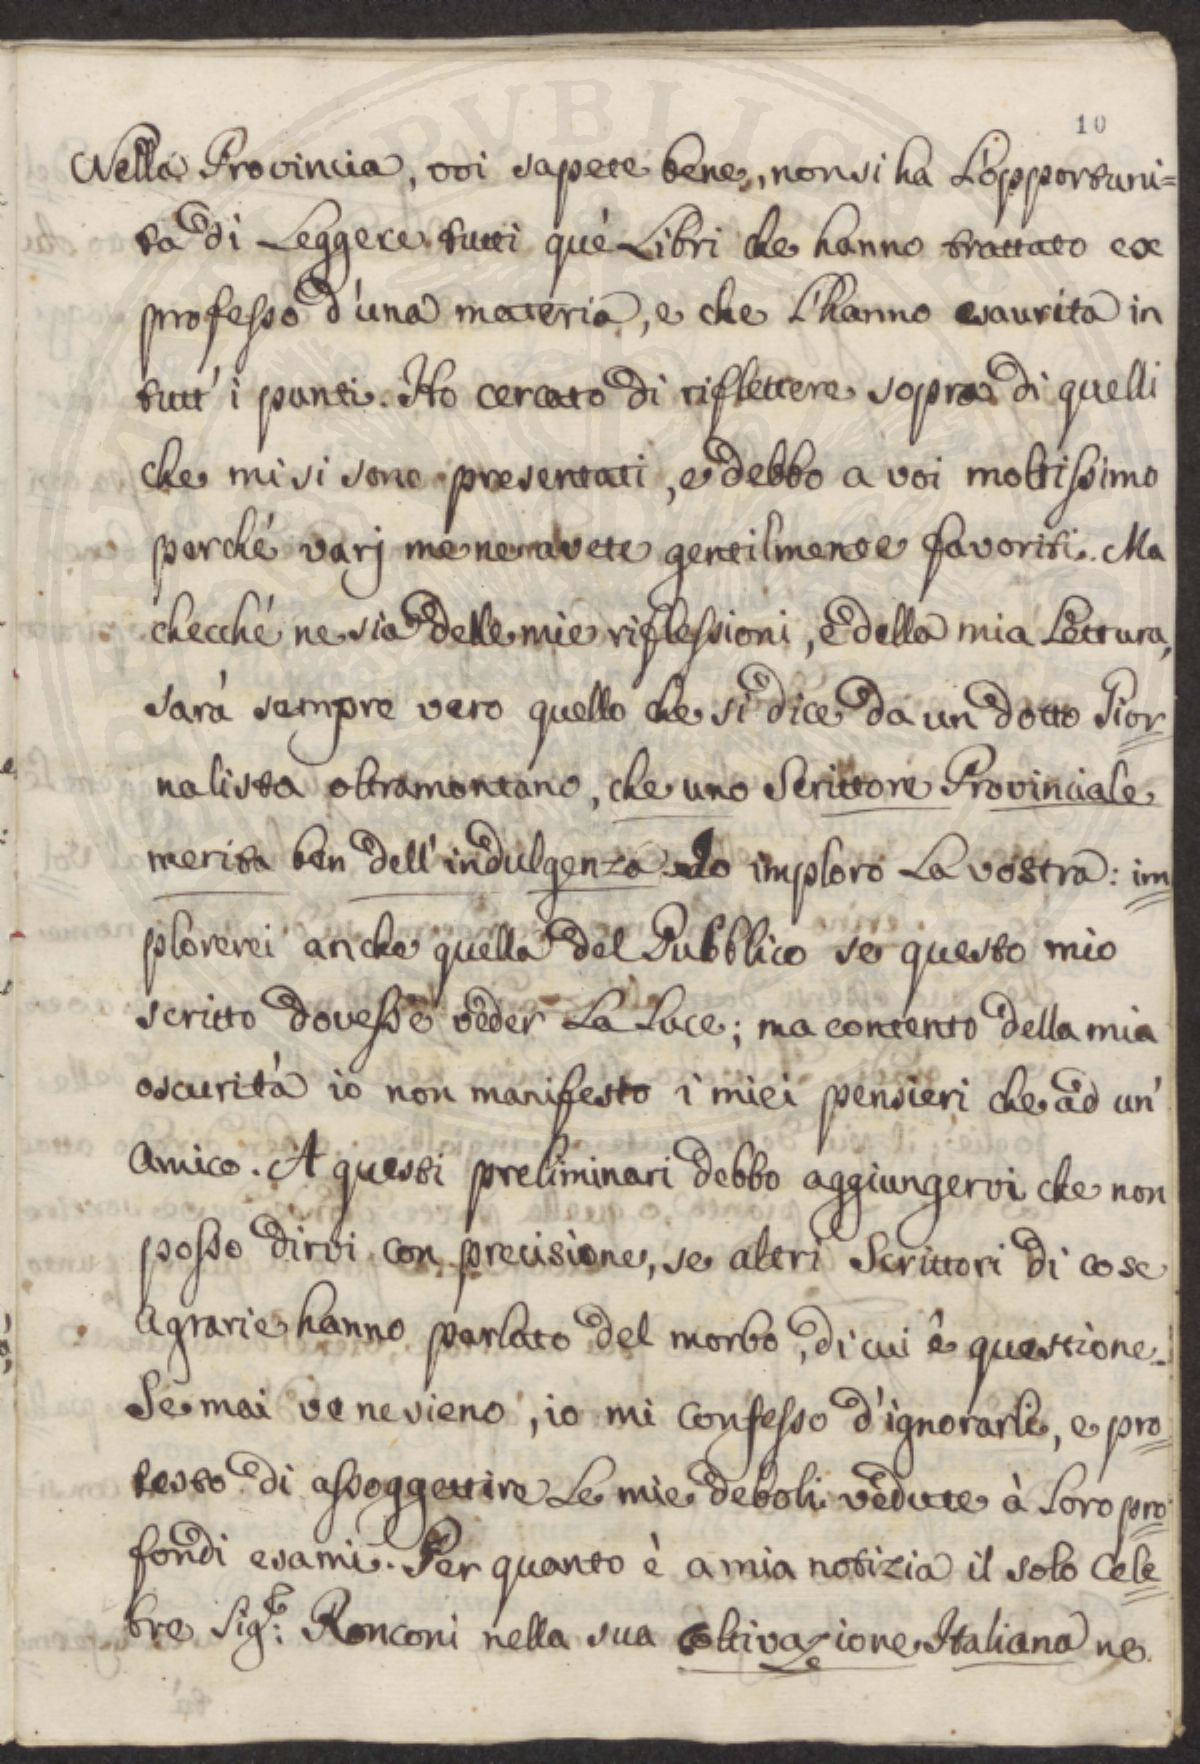 10
Nella Provincia, voi sapete bene, non si ha L'opportuni=
ta di Leggere tutti què Libri che hanno trattato ex
professo d'una materia, e che L'hanno esaurita in
tutt'i punti. Ho cercato di riflettere sopra di quelli
che mi si sono presentati, e debbo a voi moltissimo
perché varj me ne avete gentilmente favoriti. Ma
checché ne sia delle mie riflessioni, e della mia Lettura,
sarà sempre vero quello che si dice da un dotto Gior=
nalista oltramontano, che uno Scrittore Provinciale
merita ben dell'indulgenza. Io imploro La vostra: im=
plorerei anche quella del Pubblico se questo mio
scritto dovesse veder La Luce; ma contento della mia
oscurità io non manifesto i miei pensieri che ad un'
Amico. A questi preliminari debbo aggiungervi che non
posso dirvi con precisione, se altri Scrittori di cose
Agrarie hanno parlato del morbo, di cui è questione.
Se mai ve ne sieno, io mi confesso d'ignorarli, e pro=
testo di assoggettire Le mie deboli vedute à Loro pro=
fondi esami. Per quanto è a mia notizia il solo Cele=
bre Sig.r Ronconi nella sua Coltivazione Italiana ne